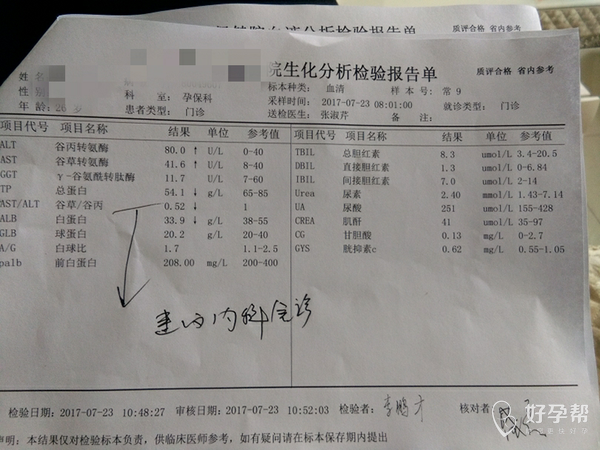 质评合格 省内参考
院生化分析检验报告单
质评合格 省内参考
姓
性别
科 室: 孕保科
标本种类: 血清
样 本 号: 常 9
采样时间: 2017-07-23 08:01:00
就诊类型: 门诊
年 龄: 26 岁
患者类型: 门诊
送检医生: 张淑芹
项目代号 项目名称 结果 单位 参考值 项目代号 项目名称 结果 单位 参考值
ALT 谷丙转氨酶 80.0 ↑ U/L 0-40 TBIL 总胆红素 8.3 umol/L 3.4-20.5
AST 谷草转氨酶 41.6 ↑ U/L 8-40 DBIL 直接胆红素 1.3 umol/L 0-6.84
GGT γ-谷氨酰转肽酶 11.7 U/L 7-60 IBIL 间接胆红素 7.0 umol/L 2-14
TP 总蛋白 54.1 ↓ g/L 65-85 Urea 尿素 2.40 mmol/L 1.43-7.14
AST/ALT 谷草/谷丙 0.52 ↓ 1 UA 尿酸 251 umol/L 155-428
ALB 白蛋白 33.9 ↓ g/L 38-55 CREA 肌酐 41 umol/L 35-97
GLB 球蛋白 20.2 g/L 20-40 CG 甘胆酸 0.13 mg/L 0-2.7
A/G 白球比 1.7 1.1-2.5 GYS 胱抑素c 0.62 mg/L 0.55-1.05
palb 前白蛋白 208.00 mg/L 200-400
建议内科会诊
检验日期: 2017-07-23 10:48:27 审核日期: 2017-07-23 10:52:03 检验者: 李鹏才 核对者:
声明: 本结果仅对检验标本负责,供临床医师参考,如有疑问请在标本保存期内提出
好孕帮